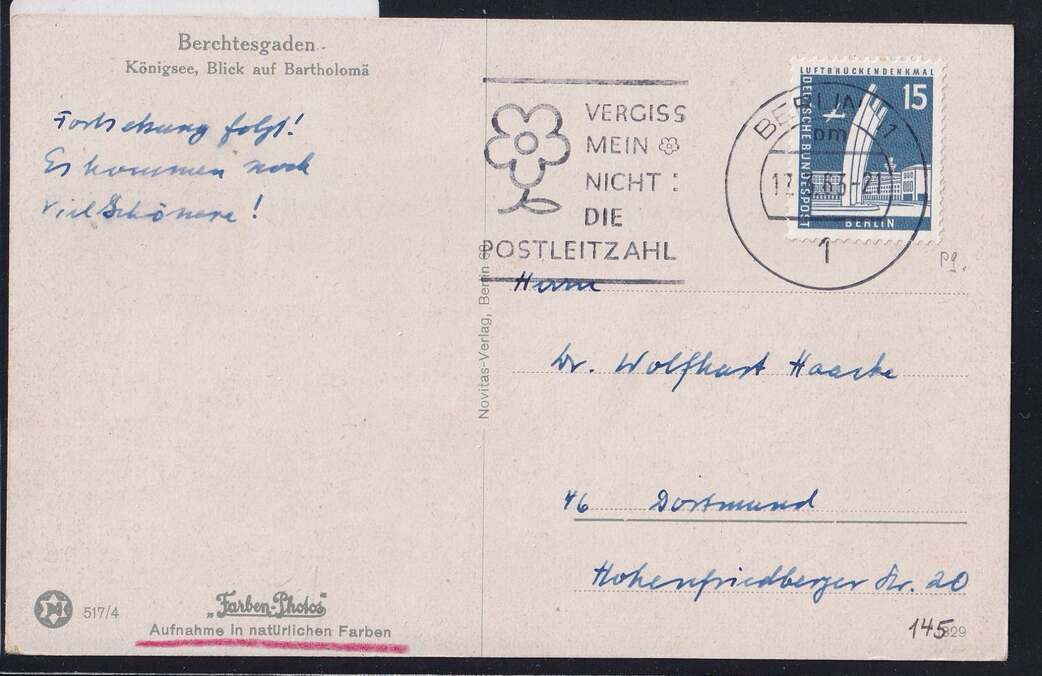 Berchtesgaden
Königsee, Blick auf Bartholomä
Fortsetzung folgt!
Es kommen noch
viel Schönere!
VERGISS
MEIN
NICHT:
DIE
POSTLEITZAHL
BERLIN 1
pm
63-21
1
LUFTBRÜCKENDENKMAL
15
DEUTSCHE BUNDESPOST
BERLIN
P9.
Novitas-Verlag, Berlin
Herrn
Dr. Wolfhart Haacke
46 Dortmund
Hohenfriedberger Str. 20
517/4
„Farben-Photos“
Aufnahme in natürlichen Farben
145
829